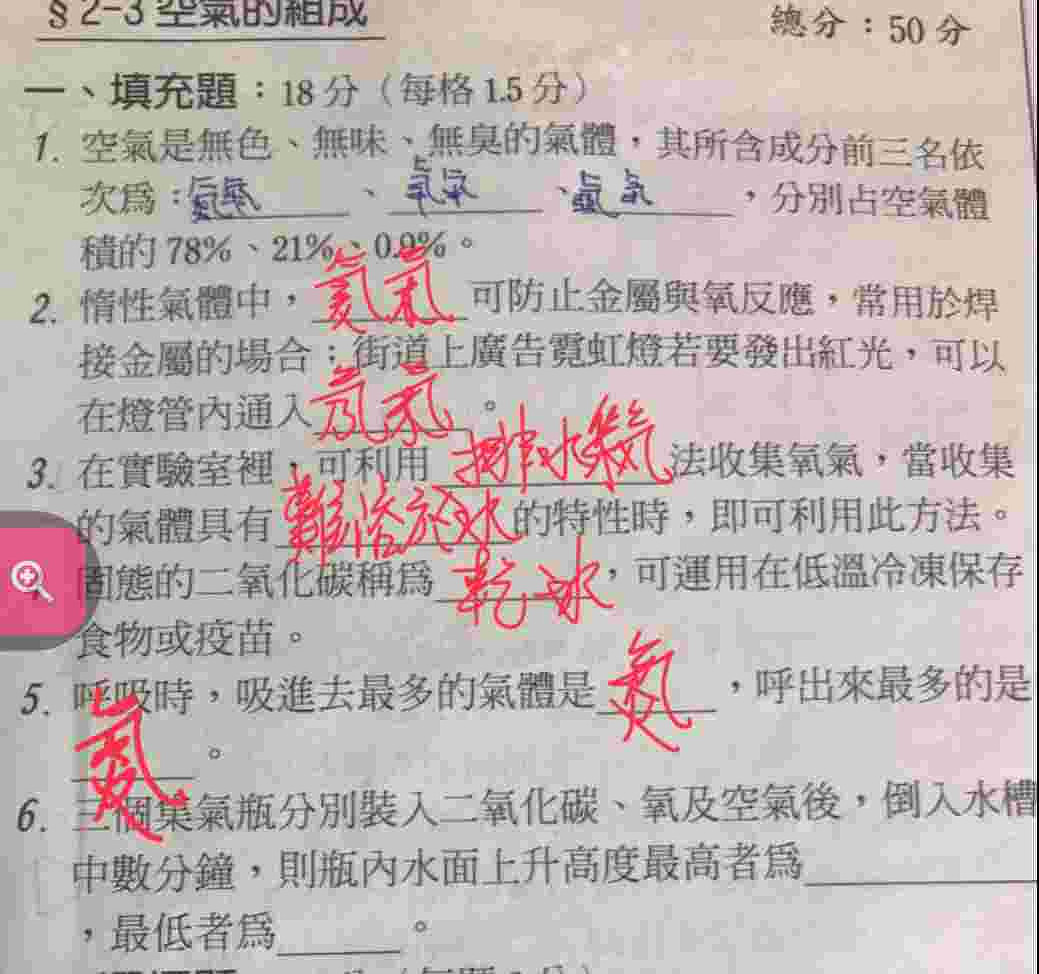 § 2-3 空氣的組成
總分：50 分
一、填充題：18 分（每格 1.5 分）
1. 空氣是無色、無味、無臭的氣體，其所含成分前三名依
次爲：氮氣、氧氣、氬氣，分別占空氣體
積的 78%、21%、0.9%。
2. 惰性氣體中，氬氣可防止金屬與氧反應，常用於焊
接金屬的場合；街道上廣告霓虹燈若要發出紅光，可以
在燈管內通入氖氣。
3. 在實驗室裡，可利用排水集氣法收集氧氣，當收集
的氣體具有難溶於水的特性時，即可利用此方法。
固態的二氧化碳稱爲乾冰，可運用在低溫冷凍保存
食物或疫苗。
5. 呼吸時，吸進去最多的氣體是氮，呼出來最多的是
氮。
6. 三個集氣瓶分別裝入二氧化碳、氧及空氣後，倒入水槽
中數分鐘，則瓶內水面上升高度最高者爲
，最低者爲。